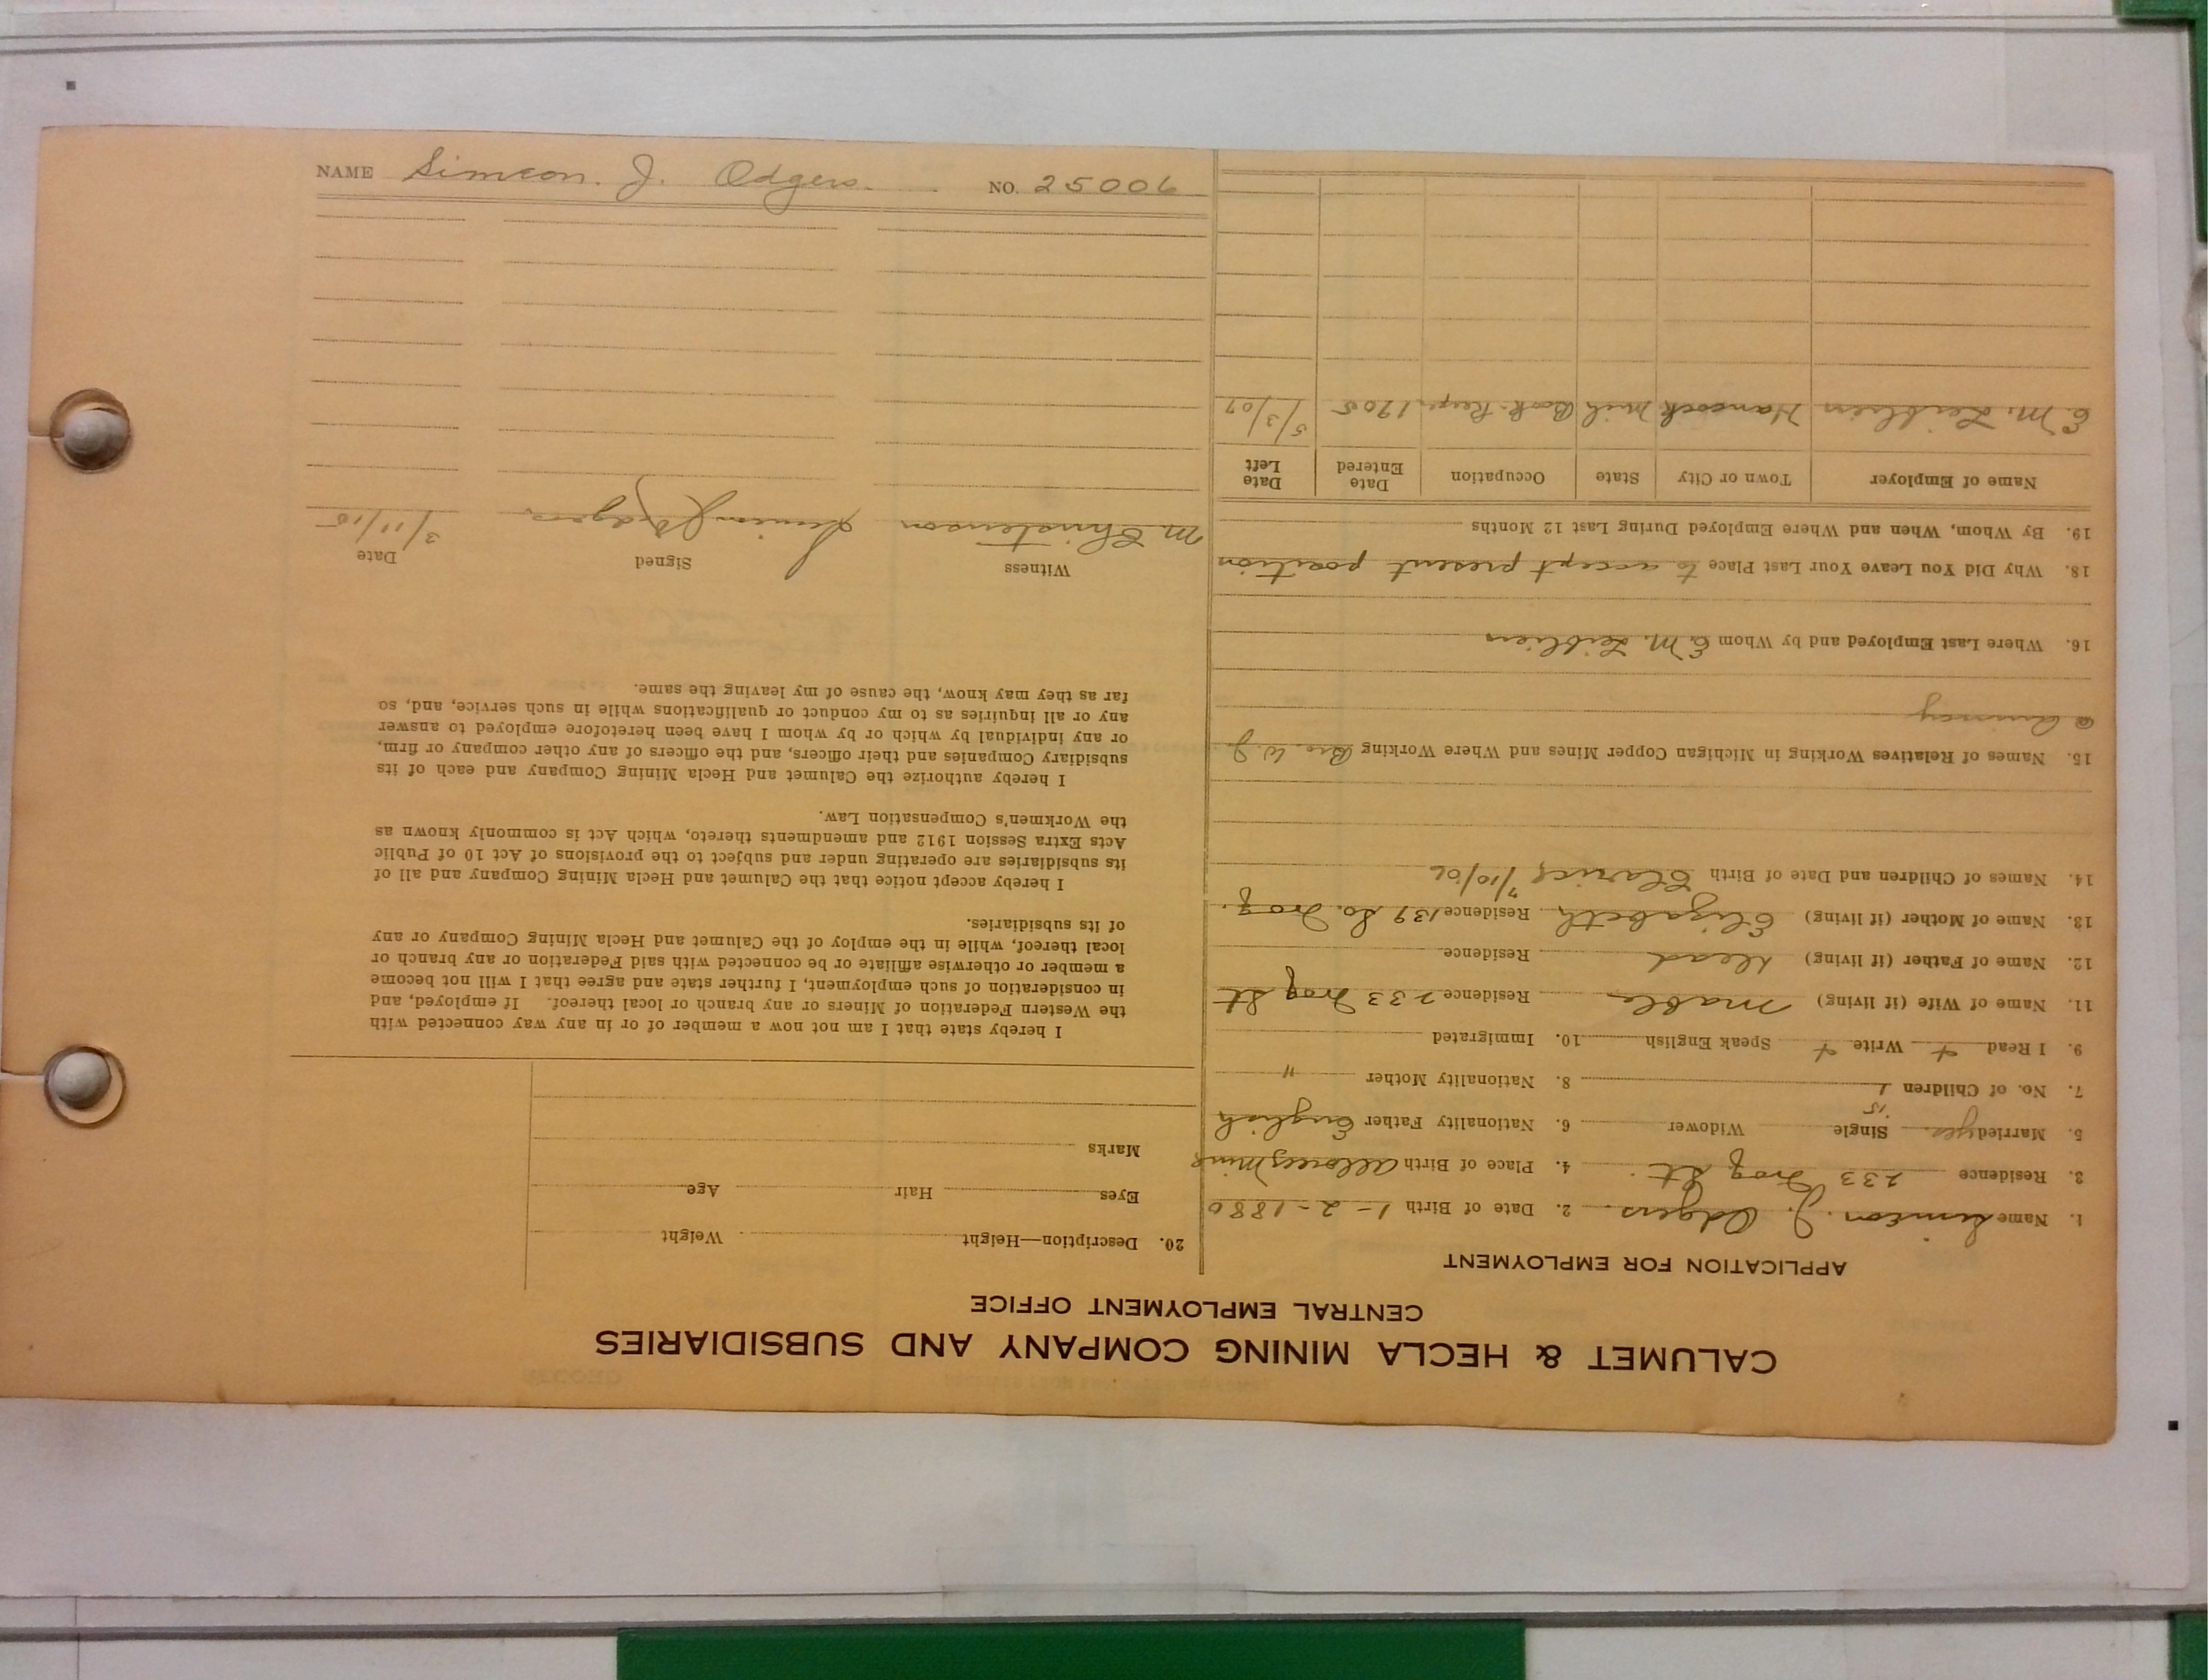 NAME Simeon. J. Odgers. NO. 25006
CALUMET & HECLA MINING COMPANY AND SUBSIDIARIES
CENTRAL EMPLOYMENT OFFICE
APPLICATION FOR EMPLOYMENT
1. Name Simeon. J. Odgers. 2. Date of Birth 1-2-1880
3. Residence 233 St. 4. Place of Birth Allouez Mine
5. Married yes Single Widower 6. Nationality Father English
15
7. No. of Children 1 8. Nationality Mother "
9. I Read + Write + Speak English 10. Immigrated
11. Name of Wife (if living) Mable Residence 233 St
12. Name of Father (if living) Dead Residence
13. Name of Mother (if living) Elizabeth Residence 139 So.
14. Names of Children and Date of Birth 7/10/06
15. Names of Relatives Working in Michigan Copper Mines and Where Working Bro. W. J.
16. Where Last Employed and by Whom E. M. Leiblien
18. Why Did You Leave Your Last Place to accept present position
19. By Whom, When and Where Employed During Last 12 Months
Name of Employer Town or City State Occupation Date Entered Date Left
E. M. Leiblien Hancock Mich Book-Keep. 1905 5/3/07
20. Description—Height Weight
Eyes Hair Age
Marks
I hereby state that I am not now a member of or in any way connected with
the Western Federation of Miners or any branch or local thereof. If employed, and
in consideration of such employment, I further state and agree that I will not become
a member or otherwise affiliate or be connected with said Federation or any branch or
local thereof, while in the employ of the Calumet and Hecla Mining Company or any
of its subsidiaries.
I hereby accept notice that the Calumet and Hecla Mining Company and all of
its subsidiaries are operating under and subject to the provisions of Act 10 of Public
Acts Extra Session 1912 and amendments thereto, which Act is commonly known as
the Workmen's Compensation Law.
I hereby authorize the Calumet and Hecla Mining Company and each of its
subsidiary Companies and their officers, and the officers of any other company or firm,
or any individual by which or by whom I have been heretofore employed to answer
any or all inquiries as to my conduct or qualifications while in such service, and, so
far as they may know, the cause of my leaving the same.
Witness Signed Date
M. Christenson Simeon J Odgers 3/11/15